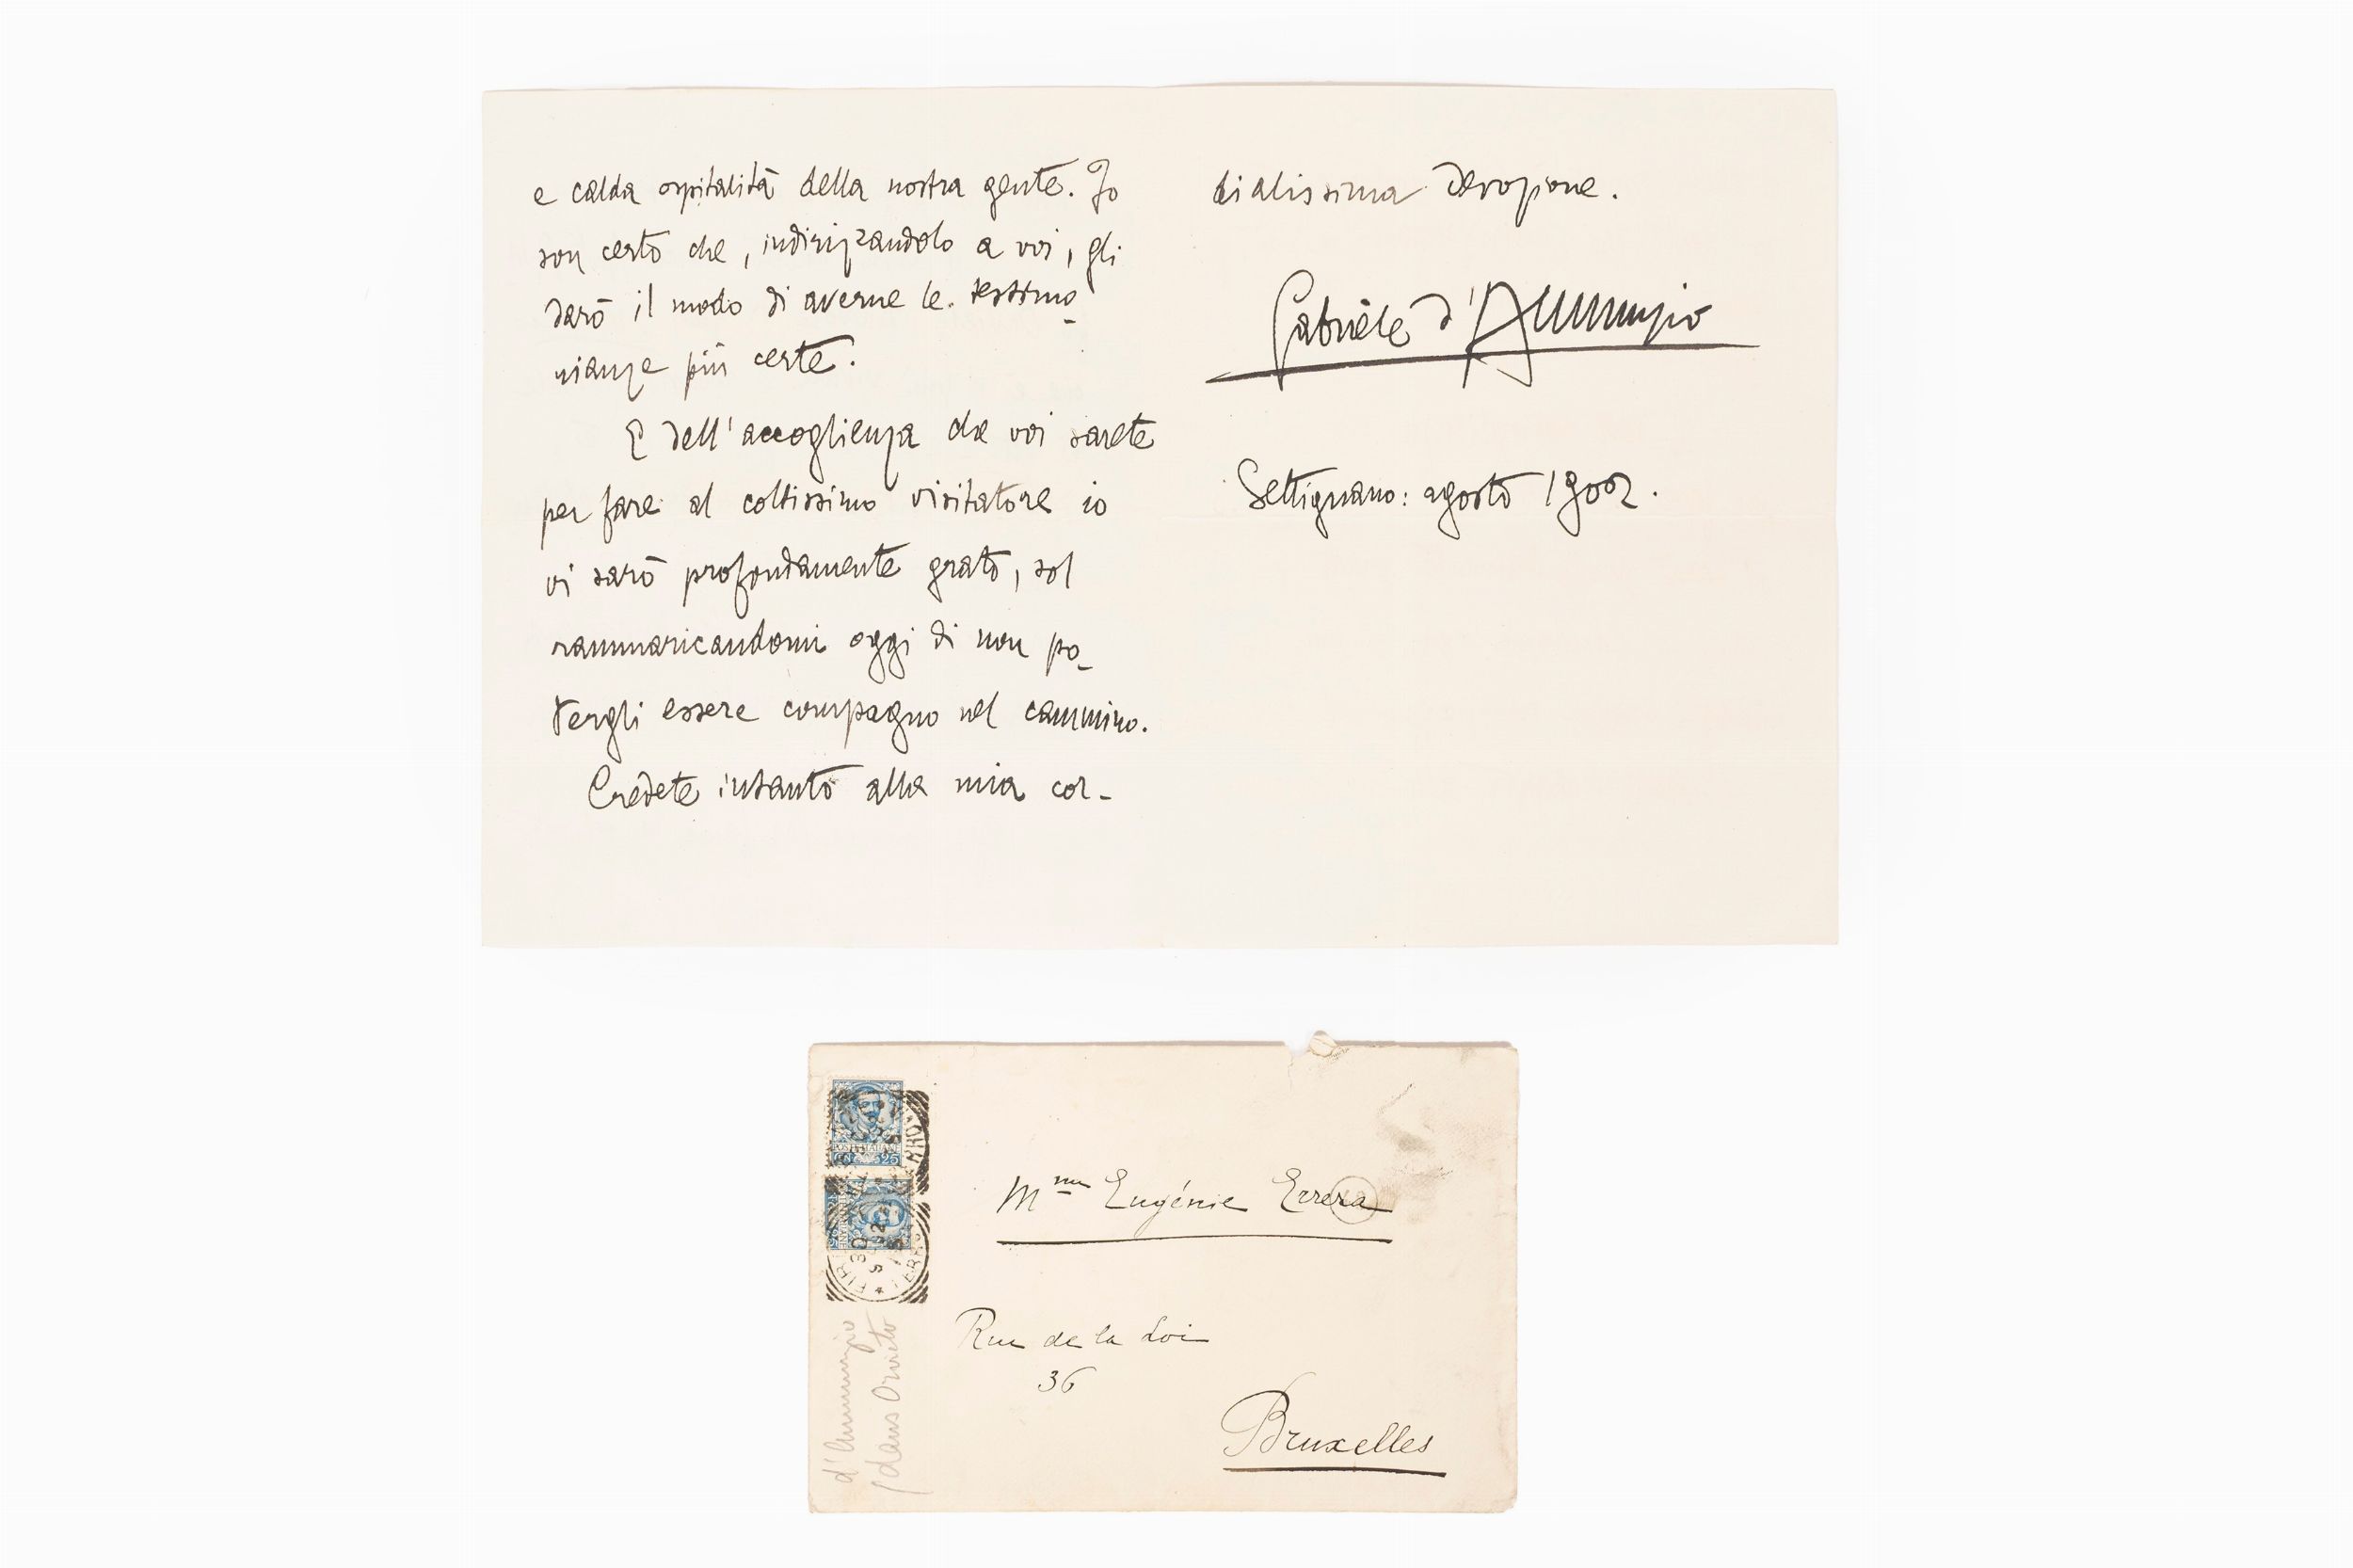 e calda ospitalità della nostra gente. Io
son certo che, indirizzandolo a voi, gli
darò il modo di averne le testimo-
nianze più certe.
E dell'accoglienza che voi sarete
per fare al coltissimo visitatore io
vi sarò profondamente grato, sol
rammaricandomi oggi di non po-
tergli essere compagno nel cammino.
Credete intanto alla mia cor-
dialissima devozione.
Gabriele d'Annunzio
Settignano: agosto 1902.
Mme Eugénie Errera
Rue de la Loi
36
Bruxelles
d'Annunzio
dans Orvieto
25